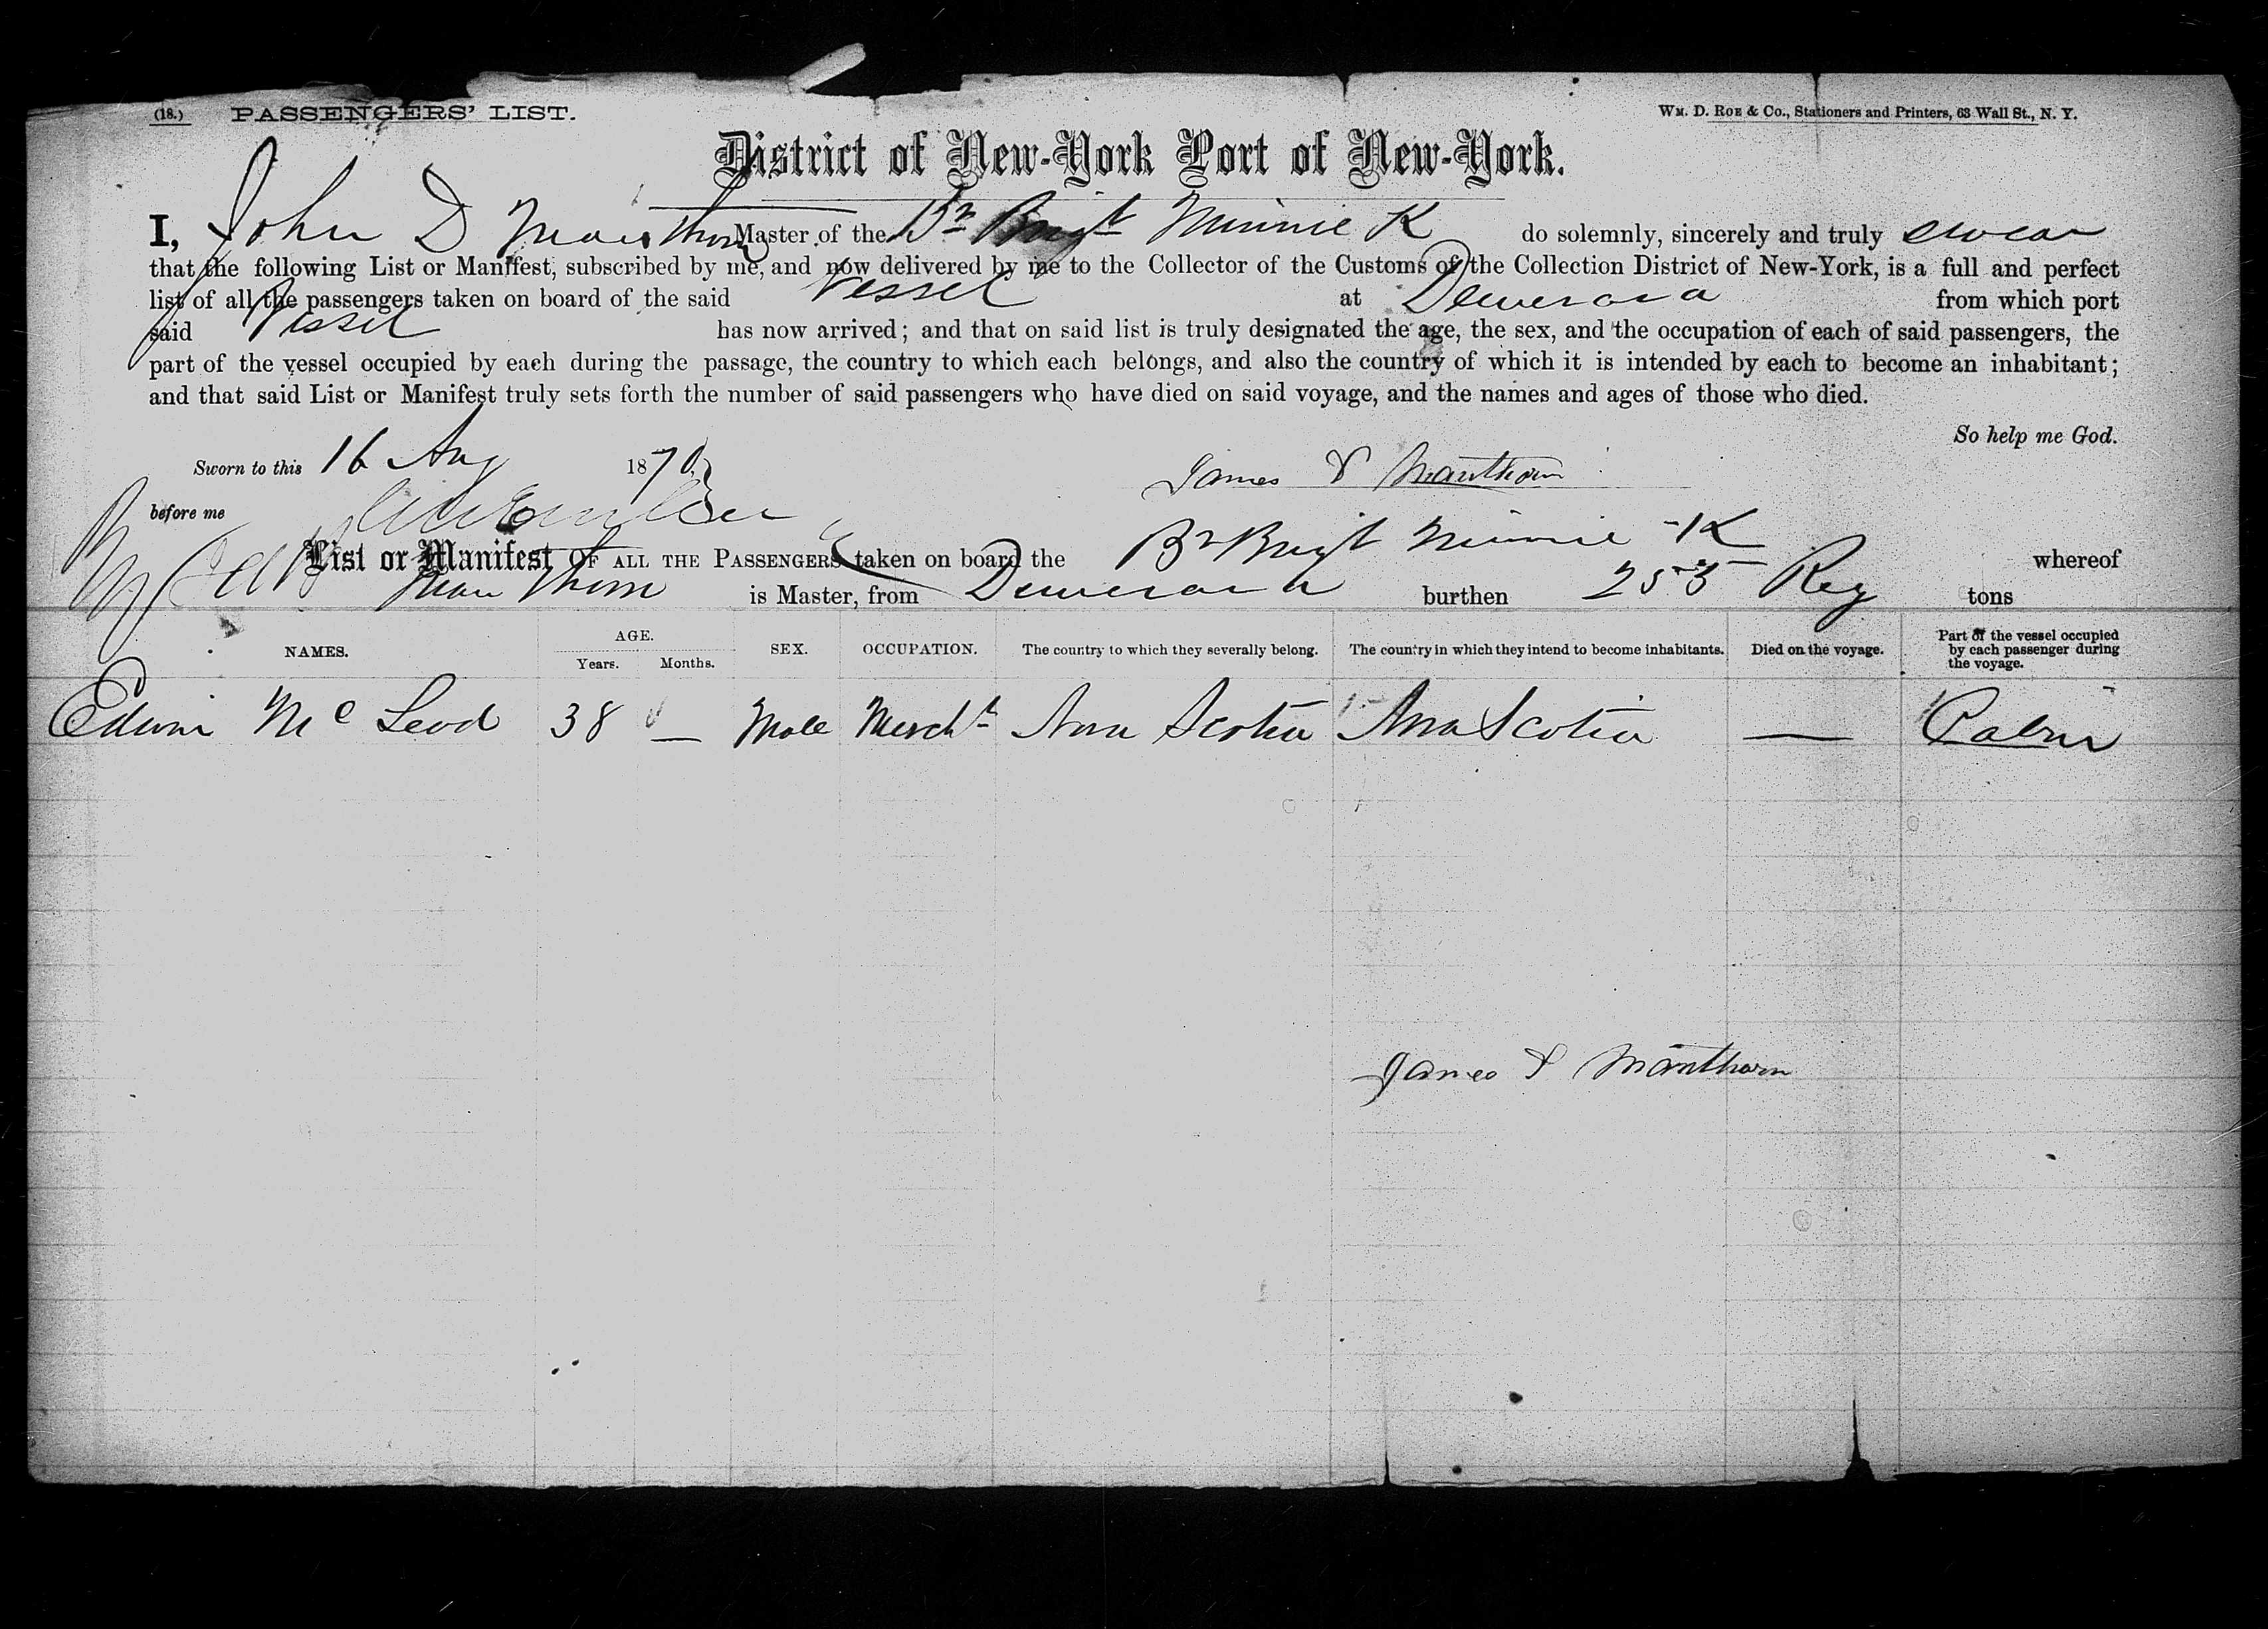 (18.) PASSENGERS' LIST.
WM. D. ROE & CO., Stationers and Printers, 63 Wall St., N. Y.
District of New-York Port of New-York.
I, John D Mansthorn Master of the Br Brigt Minnie K do solemnly, sincerely and truly swear
that the following List or Manifest, subscribed by me, and now delivered by me to the Collector of the Customs of the Collection District of New-York, is a full and perfect
list of all the passengers taken on board of the said Vessel at Demerara from which port
said Vessel has now arrived; and that on said list is truly designated the age, the sex, and the occupation of each of said passengers, the
part of the vessel occupied by each during the passage, the country to which each belongs, and also the country of which it is intended by each to become an inhabitant;
and that said List or Manifest truly sets forth the number of said passengers who have died on said voyage, and the names and ages of those who died.
So help me God.
Sworn to this 16 Aug 1870
James D Manthorn
before me
List or Manifest OF ALL THE PASSENGERS taken on board the Br Brigt Minnie K whereof
Manthorn is Master, from Demerara burthen 255 Reg tons
NAMES. AGE. Years. Months. SEX. OCCUPATION. The country to which they severally belong. The country in which they intend to become inhabitants. Died on the voyage. Part of the vessel occupied by each passenger during the voyage.
Edwin Mc Leod 38 — Male Mercht Nova Scotia Nova Scotia — Cabin
James D Manthorn